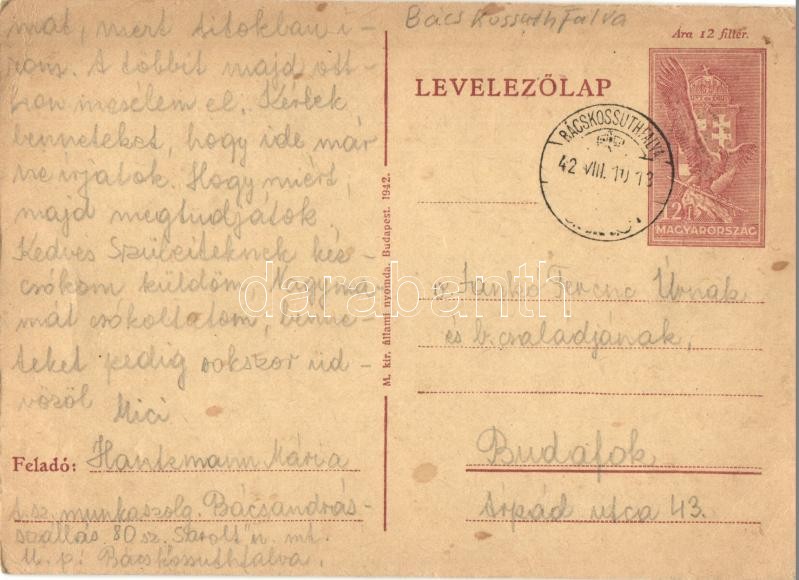 mat, mert titokban i-
rom. A többit majd ott-
hon mesélem el. Kérlek
benneteket, hogy ide már
ne írjatok. Hogy miért,
majd megtudjátok
Kedves Szüleiteknek kéz-
csókom küldöm, Nagyma-
mát csókoltatom, benne-
teket pedig sokszor üd-
vözöl Mici
Feladó: Hantzmann Mária
t. sz. munkaszolg. Bácsandrás-
szállás 80 sz. "Sarolt" n. mt.
U. p. Bácskossuthfalva.
M. kir. állami nyomda. Budapest. 1942.
Bács Kossuthfalva
Ára 12 fillér.
LEVELEZŐLAP
BÁCSKOSSUTHFALVA
42 VIII. 10 13
12f
MAGYARORSZÁG
Jankó Ferenc Úrnak
és b. családjának,
Budafok
Árpád utca 43.
darabanth.com